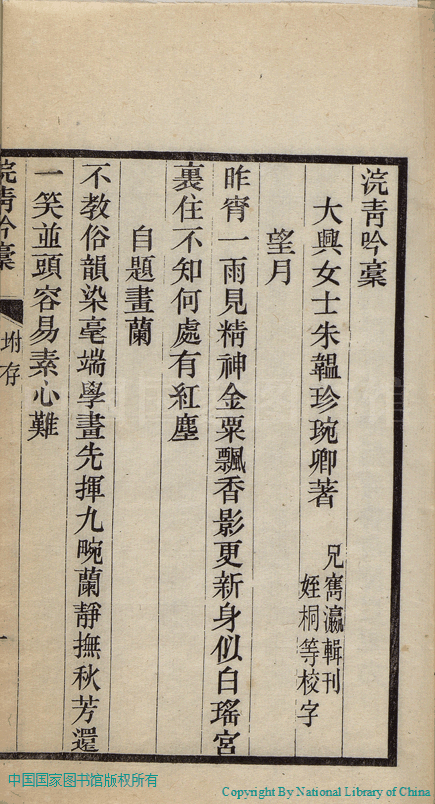 浣青吟稾
大興女士朱韞珍琬卿著
兄雋瀛輯刊
姪桐等校字
望月
昨宵一雨見精神金粟飄香影更新身似白瑤宮
裏住不知何處有紅塵
自題畫蘭
不教俗韻染毫端學畫先揮九畹蘭靜撫秋芳還
一笑並頭容易素心難
浣青吟稾
坿存
一
中国国家图书馆版权所有
Copyright By National Library of China